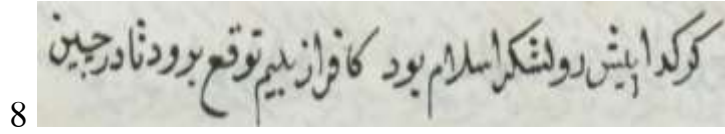 8 کر کدا پیش رو لشکر اسلام بود کافر از بیم توقع برود تا در چین